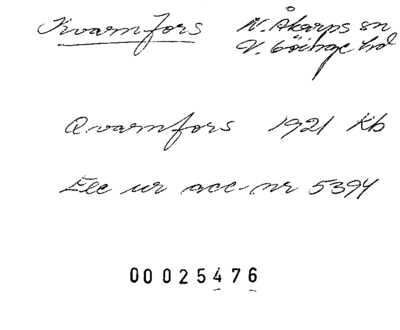 Kvarnfors N. Åkarps sn
V. Göinge hd
Qvarnfors 1921 Kb
Exc ur acc-nr 5394
00025476